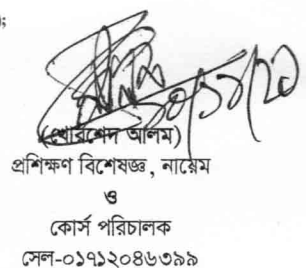 (খোরশেদ আলম)
প্রশিক্ষণ বিশেষজ্ঞ, নায়েম
ও
কোর্স পরিচালক
সেল-০১৭১২০৪৬৩৯৯